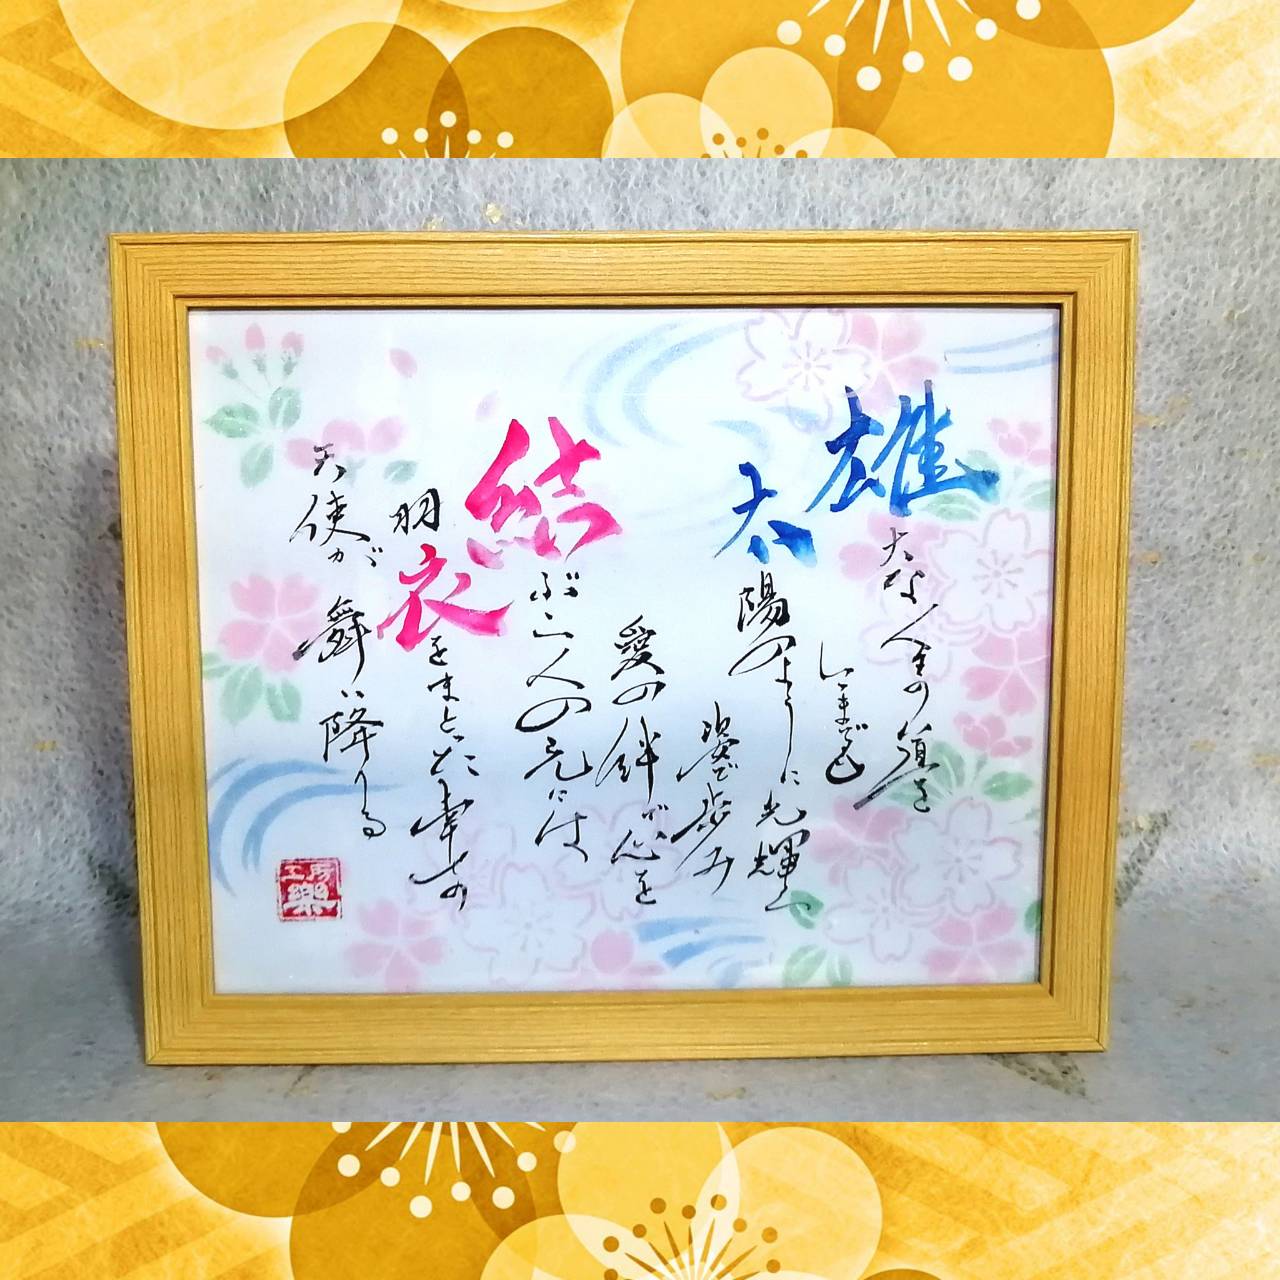 雄大な人生の道を
いつまでも
太陽のように光輝く
姿で歩み
愛の絆で心を
結ぶ二人の元には
羽衣をまとった幸せの
天使が舞い降りる
工房
樂